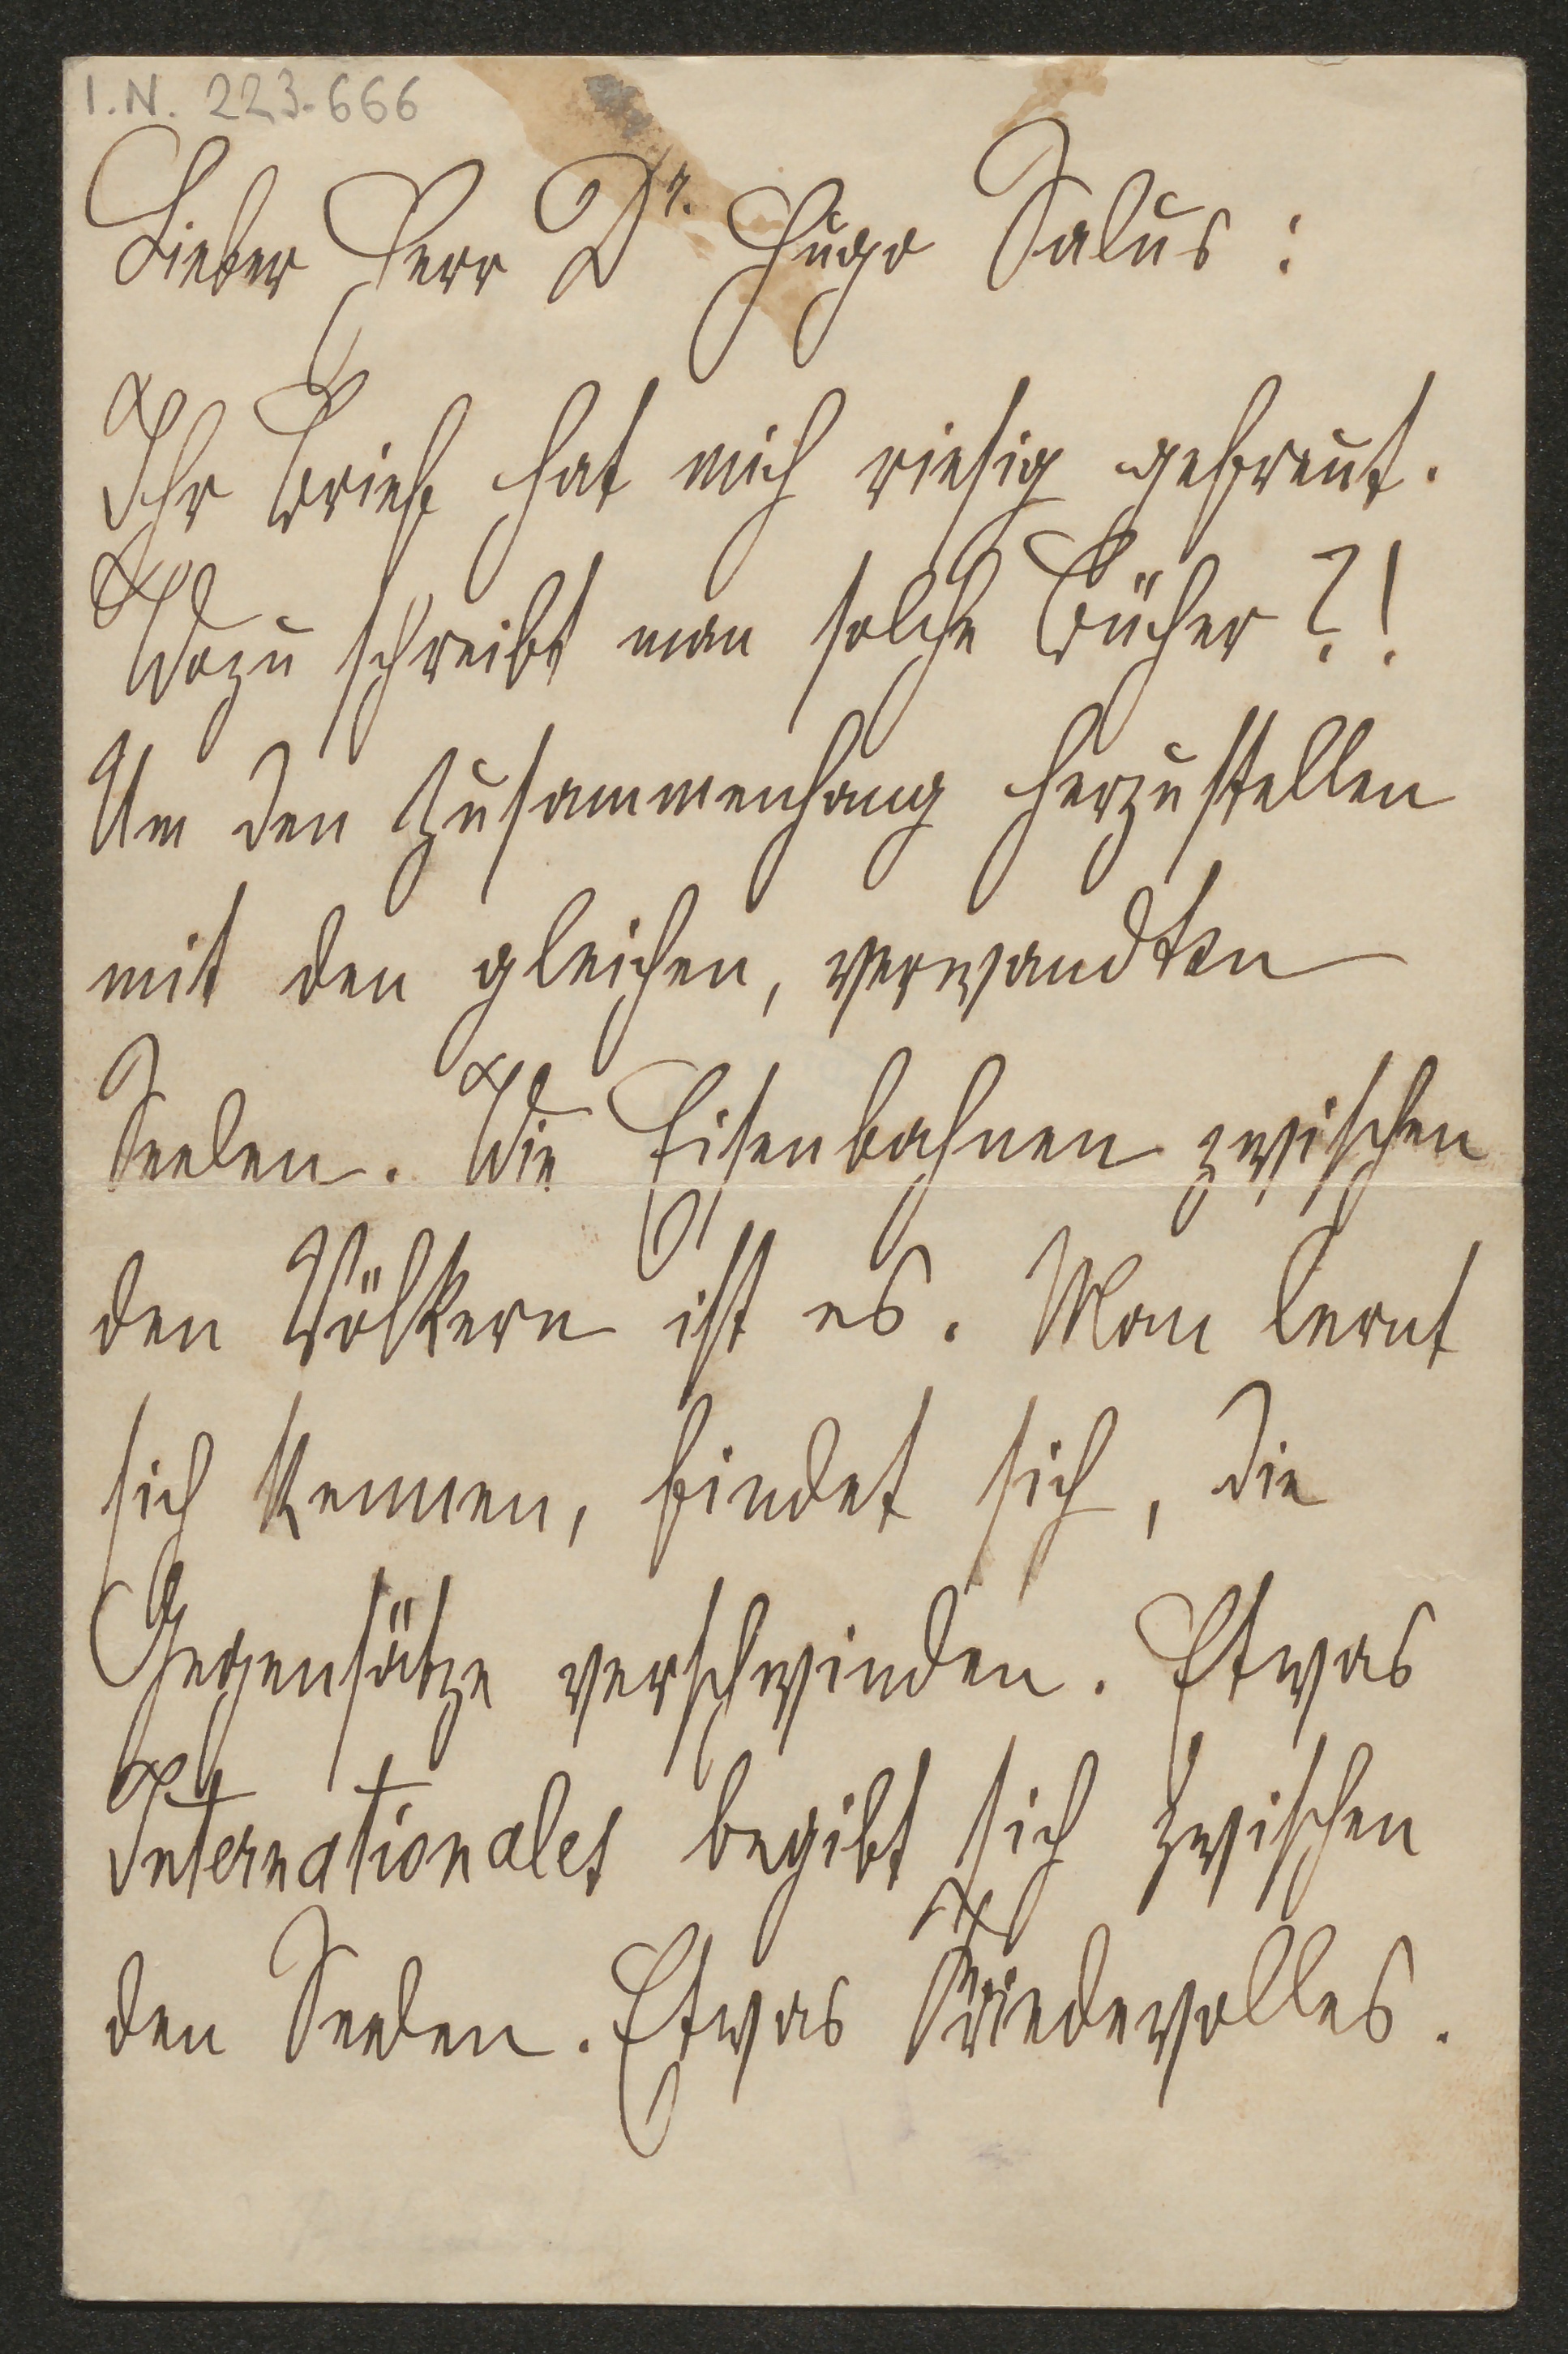 I.N. 223.666
Lieber Herr Dr. Hugo Salus:
Ihr Brief hat mich riesig gefreut.
Wozu schreibt man solche Bücher?!
Um den Zusammenhang herzustellen
mit den gleichen, verwandten
Seelen. Wie Eisenbahnen zwischen
den Völkern ist es. Man lernt
sich kennen, findet sich, die
Gegensätze verschwinden. Etwas
Internationales begibt sich zwischen
den Seelen. Etwas Friedevolles.